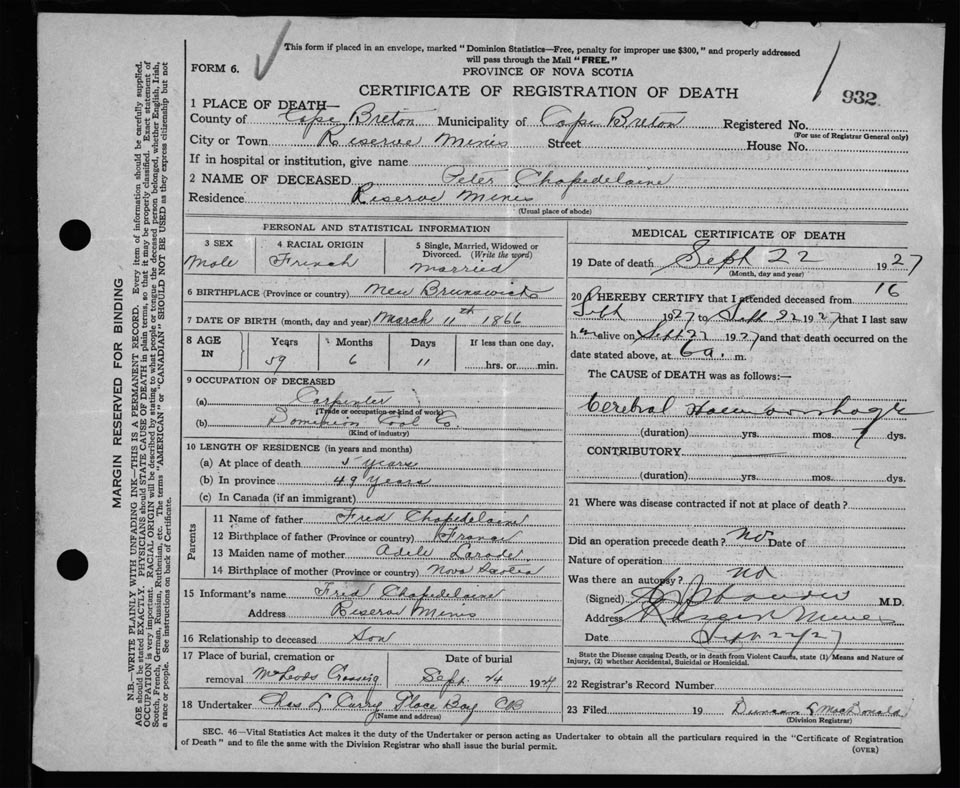 This form if placed in an envelope, marked "Dominion Statistics—Free, penalty for improper use $300," and properly addressed
will pass through the Mail "FREE."
FORM 6.
PROVINCE OF NOVA SCOTIA
CERTIFICATE OF REGISTRATION OF DEATH
932
1 PLACE OF DEATH—
County of Cape Breton Municipality of Cape Breton Registered No.
(For use of Registrar General only)
City or Town Reserve Mines Street House No.
If in hospital or institution, give name
2 NAME OF DECEASED Peter Chapedelaine
Residence Reserve Mines
(Usual place of abode)
PERSONAL AND STATISTICAL INFORMATION
3 SEX
Male
4 RACIAL ORIGIN
French
5 Single, Married, Widowed or
Divorced. (Write the word)
Married
6 BIRTHPLACE (Province or country) New Brunswick
7 DATE OF BIRTH (month, day and year) March 11th 1866
8 AGE
IN
Years
59
Months
6
Days
11
If less than one day,
hrs. or min.
9 OCCUPATION OF DECEASED
(a) Carpenter
(Trade or occupation or kind of work)
(b) Dominion Coal Co.
(Kind of industry)
10 LENGTH OF RESIDENCE (in years and months)
(a) At place of death 5 years
(b) In province 49 Years
(c) In Canada (if an immigrant)
Parents
11 Name of father Fred Chapedelaine
12 Birthplace of father (Province or country) France
13 Maiden name of mother Adele
14 Birthplace of mother (Province or country) Nova Scotia
15 Informant's name Fred Chapedelaine
Address Reserve Mines
16 Relationship to deceased Son
17 Place of burial, cremation or
removal McLeods Crossing
Date of burial
Sept. 24 1927
18 Undertaker Chas L Curry Glace Bay CB
(Name and address)
MEDICAL CERTIFICATE OF DEATH
19 Date of death Sept 22 1927
(Month, day and year)
20 I HEREBY CERTIFY that I attended deceased from 16
Sept 1927 to Sept 22 1927 that I last saw
h im alive on Sept 22 1927 and that death occurred on the
date stated above, at 6 a. m.
The CAUSE of DEATH was as follows:—
Cerebral Haemorrhage
(duration) yrs. mos. 7 dys.
CONTRIBUTORY
(duration) yrs. mos. dys.
21 Where was disease contracted if not at place of death?
Did an operation precede death? No Date of
Nature of operation
Was there an autopsy? No
(Signed) M.D.
Address Reserve Mines
Date Sept 22/27
State the Disease causing Death, or in death from Violent Causes, state (1) Means and Nature of
Injury, (2) whether Accidental, Suicidal or Homicidal.
22 Registrar's Record Number
23 Filed 19 Duncan S MacDonald
(Division Registrar)
SEC. 46—Vital Statistics Act makes it the duty of the Undertaker or person acting as Undertaker to obtain all the particulars required in the "Certificate of Registration
of Death" and to file the same with the Division Registrar who shall issue the burial permit.
(OVER)
MARGIN RESERVED FOR BINDING
N.B.—WRITE PLAINLY WITH UNFADING INK—THIS IS A PERMANENT RECORD. Every item of information should be carefully supplied.
AGE should be stated EXACTLY. PHYSICIANS should STATE CAUSE OF DEATH in plain terms, so that it may be properly classified. Exact statement of
OCCUPATION is very important. RACIAL ORIGIN will be described by stating to what people or tongue the deceased person belonged, whether English, Irish,
Scotch, French, German, Russian, Ruthenian, etc. The terms "AMERICAN" or "CANADIAN" SHOULD NOT BE USED as they express citizenship but not
a race or people. See instructions on back of Certificate.